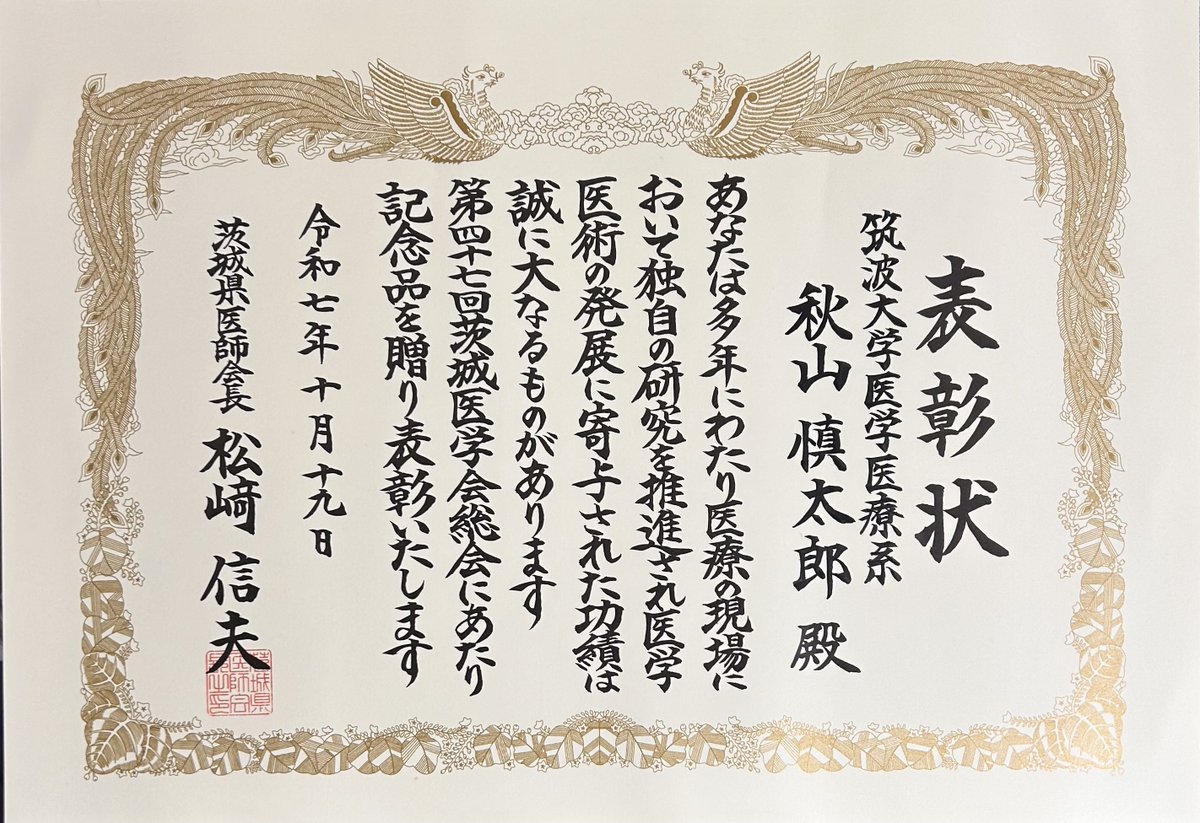 表彰状
筑波大学医学医療系
秋山慎太郎 殿
あなたは多年にわたり医療の現場に
おいて独自の研究を推進され医学
医術の発展に寄与された功績は
誠に大なるものがあります
第四十七回茨城医学会総会にあたり
記念品を贈り表彰いたします
令和七年十月十九日
茨城県医師会長 松﨑信夫
茨城県
医師会
長之印